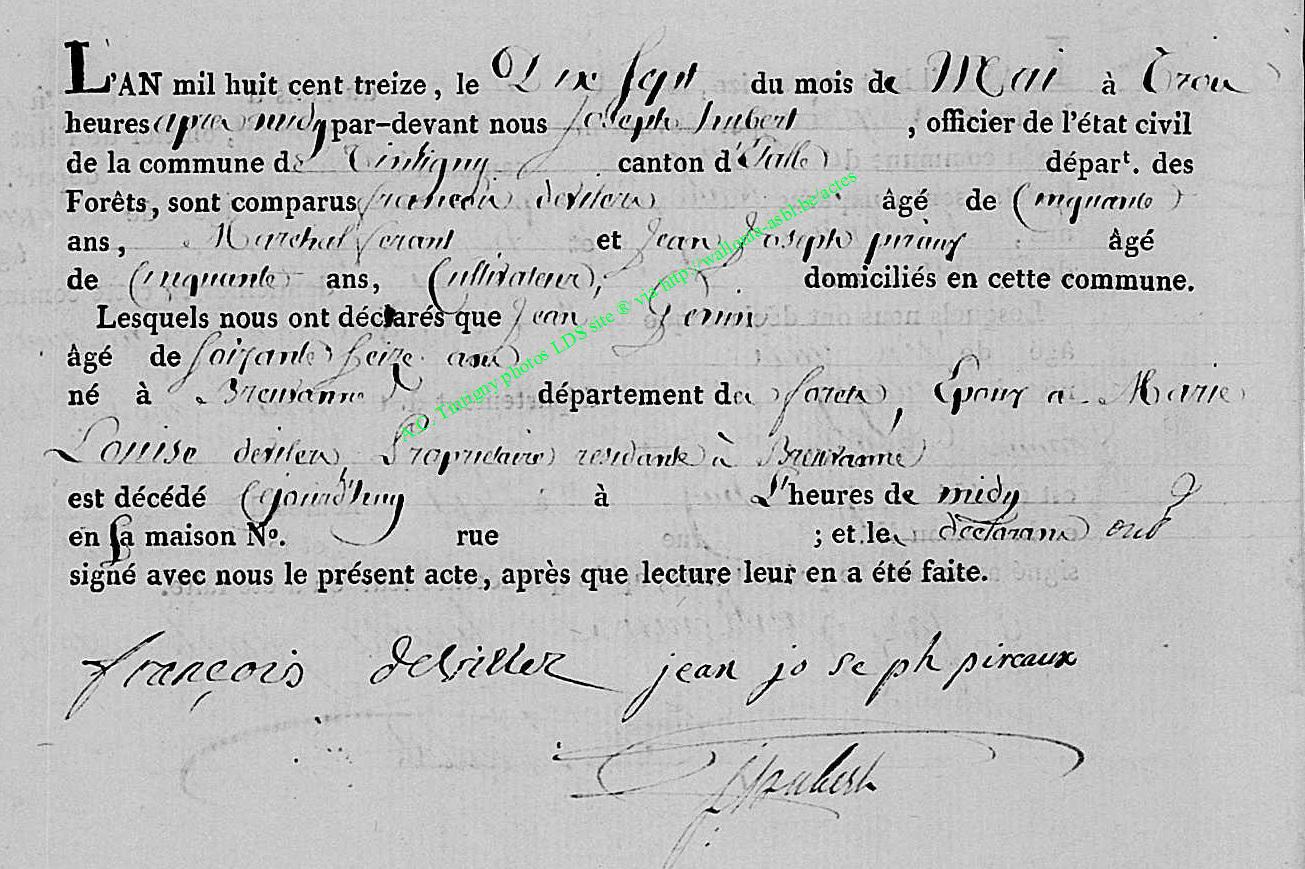 L'AN mil huit cent treize, le Dix Sept du mois de Mai à Trois
heures apres midy par-devant nous Joseph hubert , officier de l'état civil
de la commune de Tintigny canton d'Etalle départ. des
Forêts, sont comparus francois devilers âgé de Cinquante
ans, Marechal ferant et Jean Joseph piraux âgé
de Cinquante ans, Cultivateur, domiciliés en cette commune.
Lesquels nous ont déclarés que Jean
âgé de Soixante Seize ans
né à Breuvanne département des forets, Epoux a Marie
Louise devilers, Proprietaire residante à Breuvanne
est décédé Cejourd'huy à L'heures de midy
en sa maison No. rue ; et les declarans ont
signé avec nous le présent acte, après que lecture leur en a été faite.
françois deviller jean jo se ph pireaux
J Hubert
A.C. Tintigny photos LDS site ® via http://wallonia-asbl.be/actes